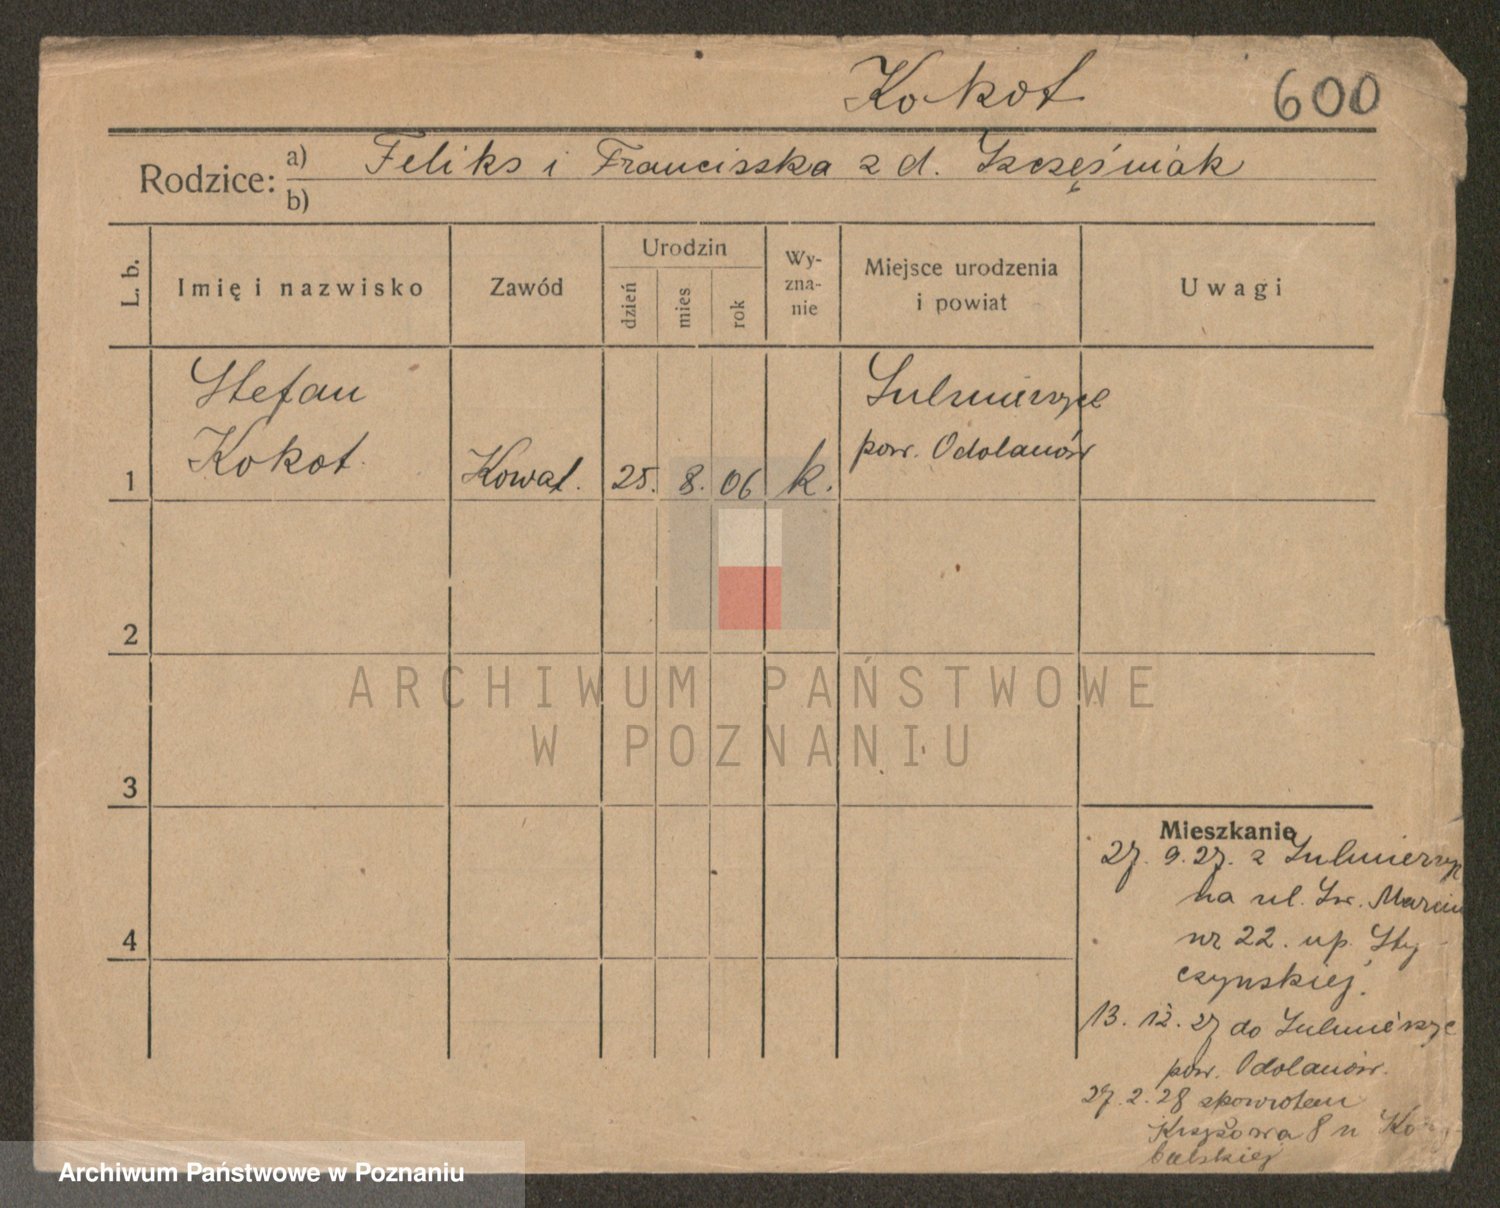 Kokot 600
Rodzice: a) Feliks i Franciszka z d. Szczęśniak
b)
L. b. Imię i nazwisko Zawód Urodzin dzień mies rok Wy-zna-nie Miejsce urodzenia i powiat Uwagi
Stefan Sulmierzyce
1 Kokot Kowal. 25. 8. 06 k. pow. Odolanów
2
ARCHIWUM PAŃSTWOWE
W POZNANIU
3
Mieszkanie
27. 9. 27. z Sulmierzyc
na ul. Św. Marcin
4 nr 22. u p. Sty
czynskiej.
13. 12. 27 do Sulmierzyc
pow. Odolanów.
27. 2. 28 zpowrotem
Krzyżowa 8 u
Archiwum Państwowe w Poznaniu